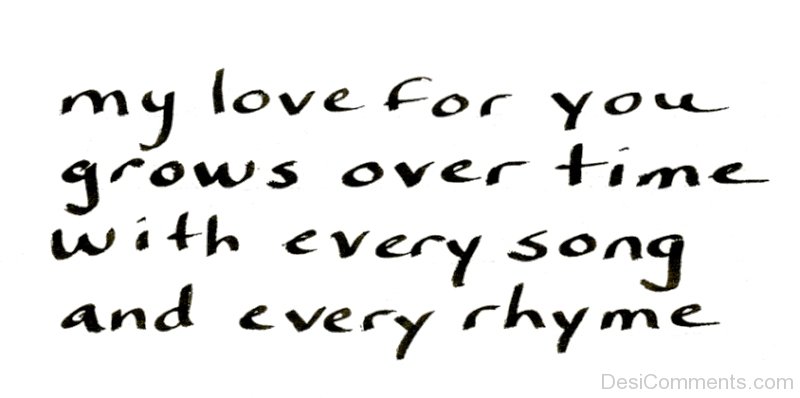 my love for you
grows over time
with every song
and every rhyme
DesiComments.com